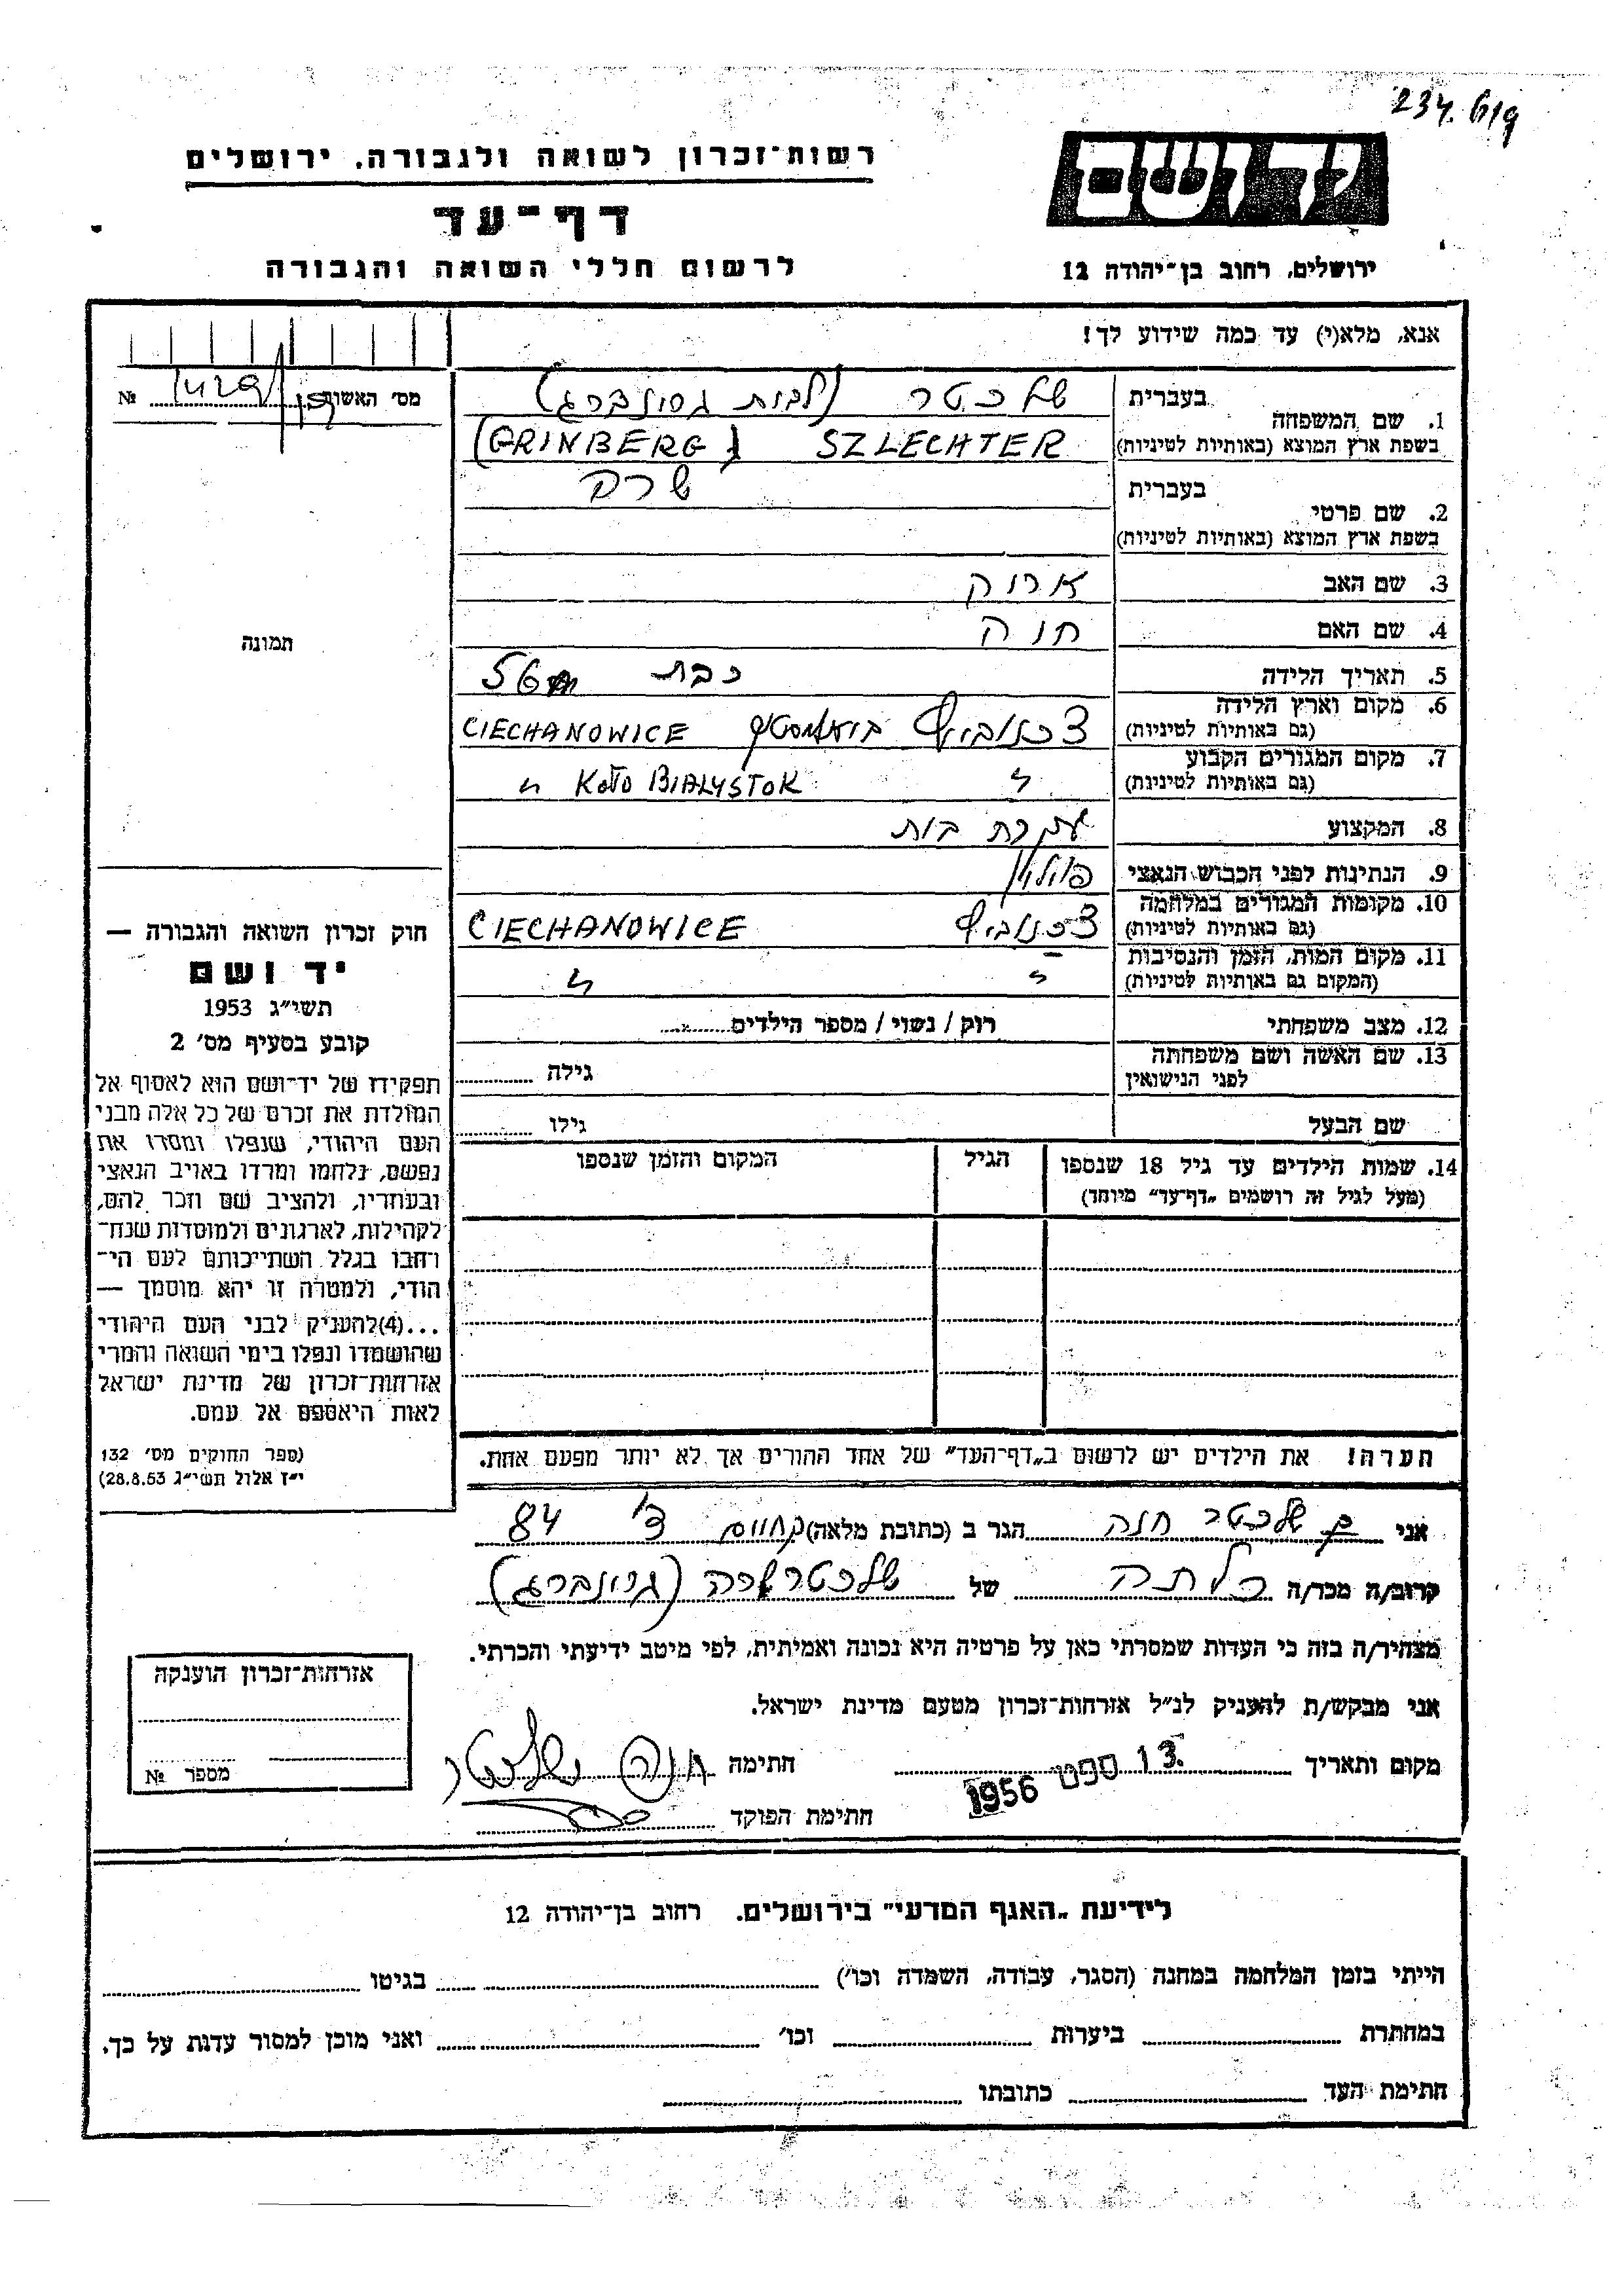 234.619
רשות־זכרון לשואה ולגבורה. ירושלים
דף־עד
לרשום חללי השואה והגבורה
יד ושם
ירושלים, רחוב בן־יהודה 12
אנא, מלא(י) עד כמה שידוע לך!
מס׳ האשור № 
בעברית
1. שם המשפחה
שלכטר (לבית גרינברג)
בשפת ארץ המוצא (באותיות לטיניות)
SZLECHTER (GRINBERG)
בעברית
2. שם פרטי
שרה
בשפת ארץ המוצא (באותיות לטיניות)
3. שם האב
4. שם האם
חוה
5. תאריך הלידה
כבת 56
6. מקום וארץ הלידה
(גם באותיות לטיניות)
CIECHANOWICE
7. מקום המגורים הקבוע
(גם באותיות לטיניות)
״ KOŁO BIALYSTOK ״
8. המקצוע
עקרת בית
9. הנתינות לפני הכבוש הנאצי
פולין
10. מקומות המגורים במלחמה
(גם באותיות לטיניות)
CIECHANOWICE
11. מקום המות, הזמן והנסיבות
(המקום גם באותיות לטיניות)
״ ״
12. מצב משפחתי
רוק / נשוי / מספר הילדים
13. שם האשה ושם משפחתה
לפני הנישואין
גילה
שם הבעל
גילו
14. שמות הילדים עד גיל 18 שנספו
(מעל לגיל זה רושמים „דף־עד״ מיוחד)
הגיל
המקום והזמן שנספו
תמונה
חוק זכרון השואה והגבורה —
יד ושם
תשי״ג 1953
קובע בסעיף מס׳ 2
תפקידו של יד־ושם הוא לאסוף אל
המולדת את זכרם של כל אלה מבני
העם היהודי, שנפלו ומסרו את
נפשם, נלחמו ומרדו באויב הנאצי
ובעוזריו, ולהציב שם וזכר להם,
לקהילות, לארגונים ולמוסדות שנח־
רבו בגלל השתייכותם לעם הי־
הודי, ולמטרה זו יהא מוסמך —
...(4)להעניק לבני העם היהודי
שהושמדו ונפלו בימי השואה והמרי
אזרחות־זכרון של מדינת ישראל
לאות היאספם אל עמם.
(ספר החוקים מס׳ 132
י״ז אלול תשי״ג 28.8.53)
הערה! את הילדים יש לרשום ב„דף־העד״ של אחד ההורים אך לא יותר מפעם אחת.
אני שלכטר חנה הגר ב (כתובת מלאה) 84
קרוב/ה מכר/ה כלתה של שלכטר שרה (גרינברג)
מצהיר/ה בזה כי העדות שמסרתי כאן על פרטיה היא נכונה ואמיתית, לפי מיטב ידיעתי והכרתי.
אני מבקש/ת להעניק לנ״ל אזרחות־זכרון מטעם מדינת ישראל.
מקום ותאריך 13 ספט 1956 חתימה חנה שלכטר
חתימת הפוקד
אזרחות־זכרון הוענקה
מספר №
לידיעת „האגף המדעי״ בירושלים. רחוב בן־יהודה 12
הייתי בזמן המלחמה במחנה (הסגר, עבודה, השמדה וכו׳) בגיטו
במחתרת ביערות וכו׳ ואני מוכן למסור עדות על כך.
חתימת העד כתובתו